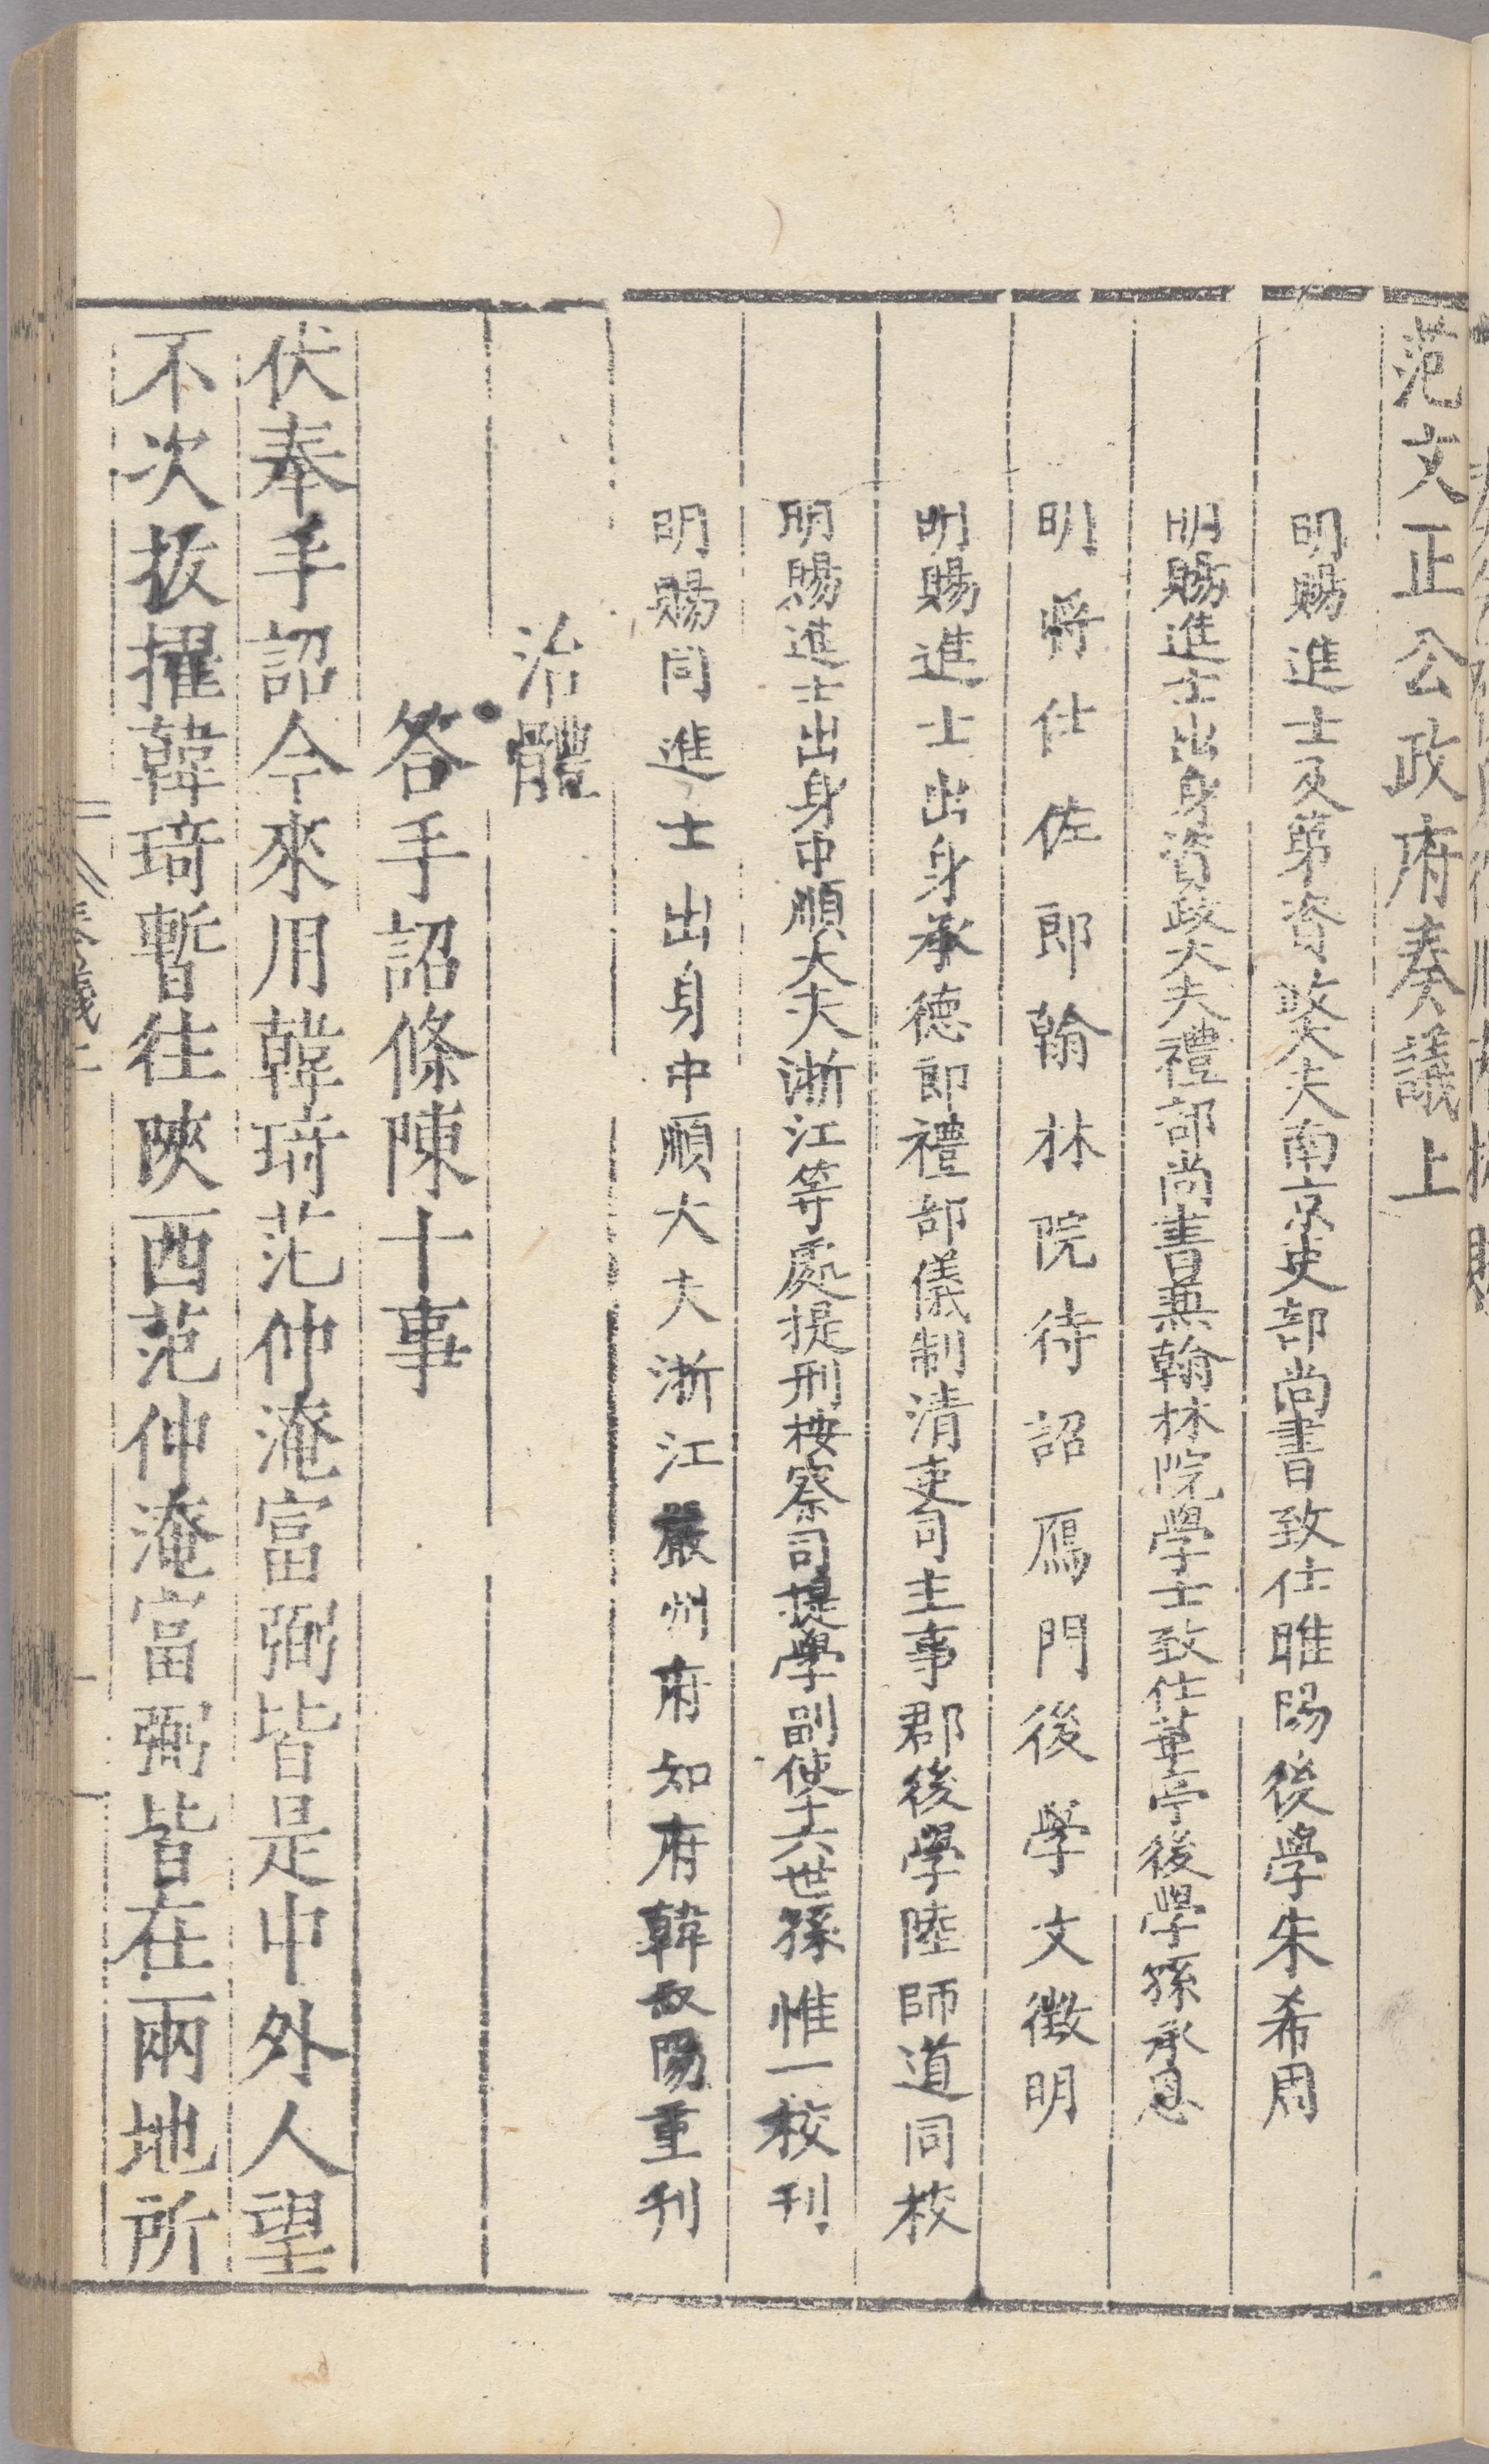 范文正公政府奏議上
明賜進士及第資政大夫南京吏部尚書致仕睢陽後學朱希周
明賜進士出身資政大夫禮部尚書兼翰林院學士致仕華亭後學孫承恩
明將仕佐郎翰林院待詔鴈門後學文徵明
明賜進士出身承德郎禮部儀制清吏司主事郡後學陸師道同校
明賜進士出身中順大夫浙江等處提刑按察司提學副使十六世孫惟一校刊
明賜同進士出身中順大夫浙江嚴州府知府韓叔陽重刊
治體
答手詔條陳十事
伏奉手詔今來用韓琦范仲淹富弼皆是中外人望
不次拔擢韓琦暫往陝西范仲淹富弼皆在兩地所